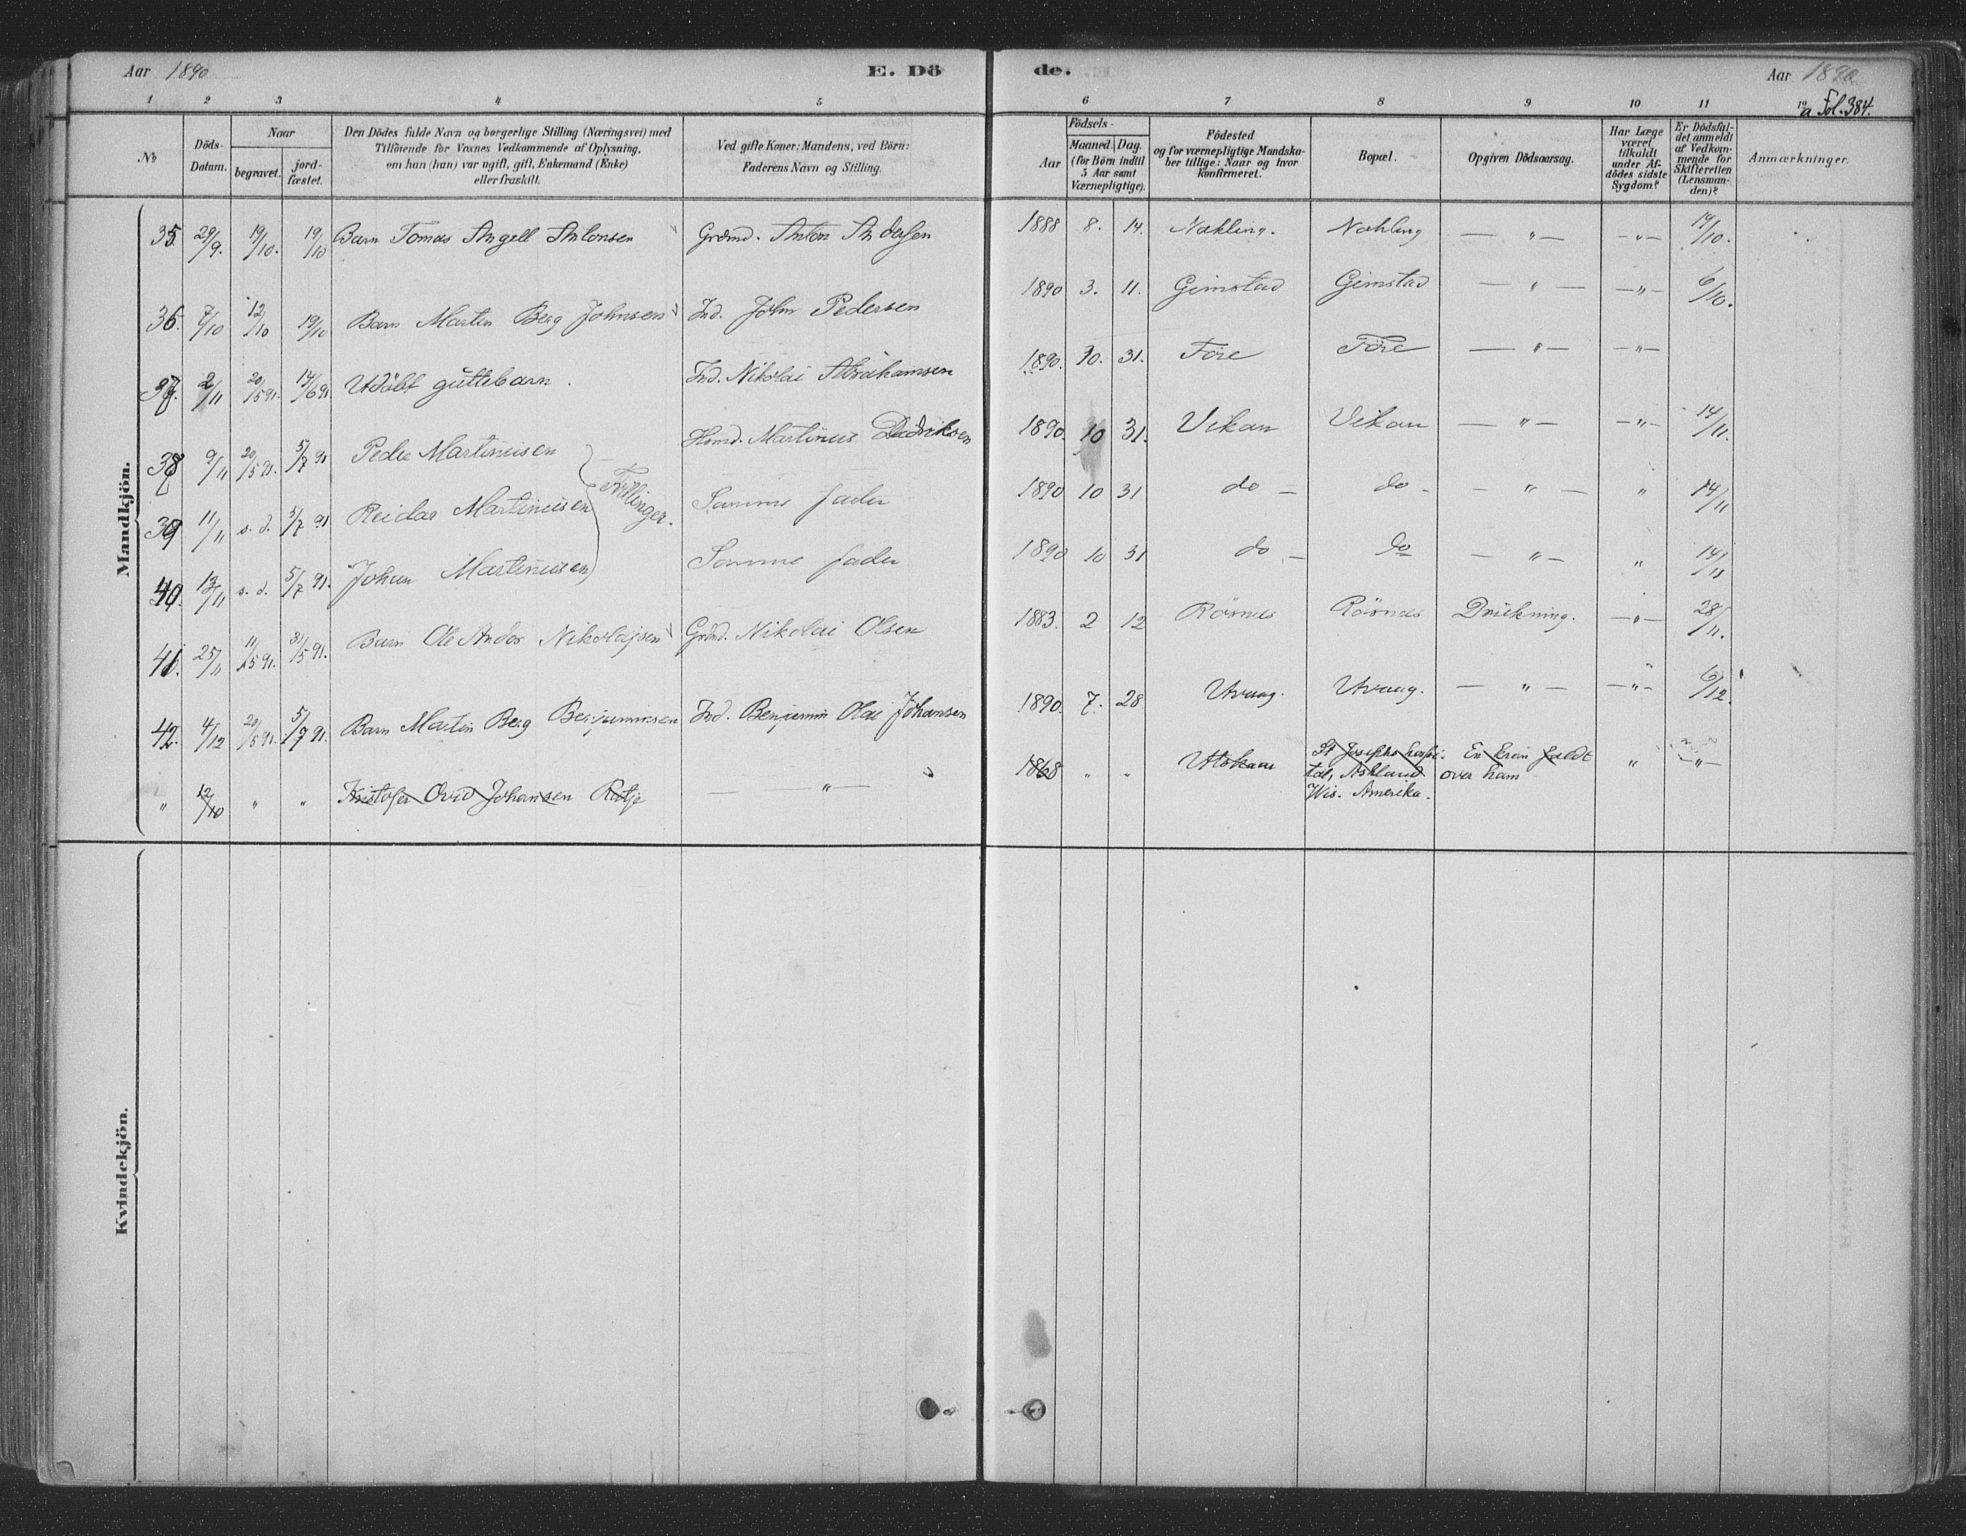 Aar 1890
E. Dö
de.
Aar 1890
1 2 3 4 5 6 7 8 9 10 11 12
a Fol. 384.
No
Döds-
Datum.
Naar
begravet.
jord-
fæstet.
Den Dödes fulde Navn og borgerlige Stilling (Næringsvei) med
Tilföiende for Voxnes Vedkommende af Oplysning,
om han (hun) var ugift, gift, Enkemand (Enke)
eller fraskilt.
Ved gifte Koner: Mandens, ved Börn:
Faderens Navn og Stilling.
Födsels-
Aar
Maaned. Dag.
(for Börn indtil
5 Aar samt
Værnepligtige).
Födested
og for værnepligtige Mandska-
ber tillige: Naar og hvor
konfirmeret.
Bopæl.
Opgiven Dödsaarsag.
Har Læge
været
tilkaldt
under Af-
dödes sidste
Sygdom?
Er Dödsfal-
det anmeldt
af Vedkom-
mende for
Skifteretten
(Lensman-
den)?
Anmærkninger.
Mandkjön.
35. 29/9. 19/10. 19/10 Barn Tomas Angell Antonsen Grdmd. Anton Andersen 1888 8. 14. Nøkling. Nøkling — „ — — „ — 19/10.
36. 7/10 12/10 19/10 Barn Martin Berg Johnsen Ind. John Pedersen 1890 3. 11. Gimstad Gimstad — „ — — „ — 6/10.
37. 2/11 20/5 91. 14/6 91. Udöbt guttebarn. Ind. Nikolai Abrahamsen 1890. 10. 31. Före Före — „ — — „ —
38 9/11 20/5 91. 5/7 91 Peder Martinusen Hmd. Martinus Didriksen 1890. 10 31. Vikan Vikan — „ — — „ — 14/11.
39 11/11 s. d. 5/7 91 Reidar Martinusen Trillinger. Samme fader 1890 10 31 do — do - — „ — „ 14/11
40. 13/11 s. d. 5/7 91. Johan Martinusen Samme fader 1890 10 31 do — do — „ — „ 14/11
41. 25/11 11/5 91. 31/5 91. Barn Ole Andor Nikolajsen Grdmd. Nikolai Olsen 1883. 2 12 Rörnes Rörnes Drukning. — „ — 28/11.
42. 4/12 20/5 91. 5/7 91. Barn Martin Berg Benjaminsen Ind. Benjamin Olai Johansen 1890. 7. 28 Utvaag. Utvaag. — „ — — „ — 6/12.
„ 12/10 „ „ Kristofer Ovid Johansen Røtje — „ — 1868 „ „ Utskaar St Josephs hospi-
tal, Ashland
Wis. Amerika.
En kran faldt
over ham
„ — „ —
Kvindekjön.